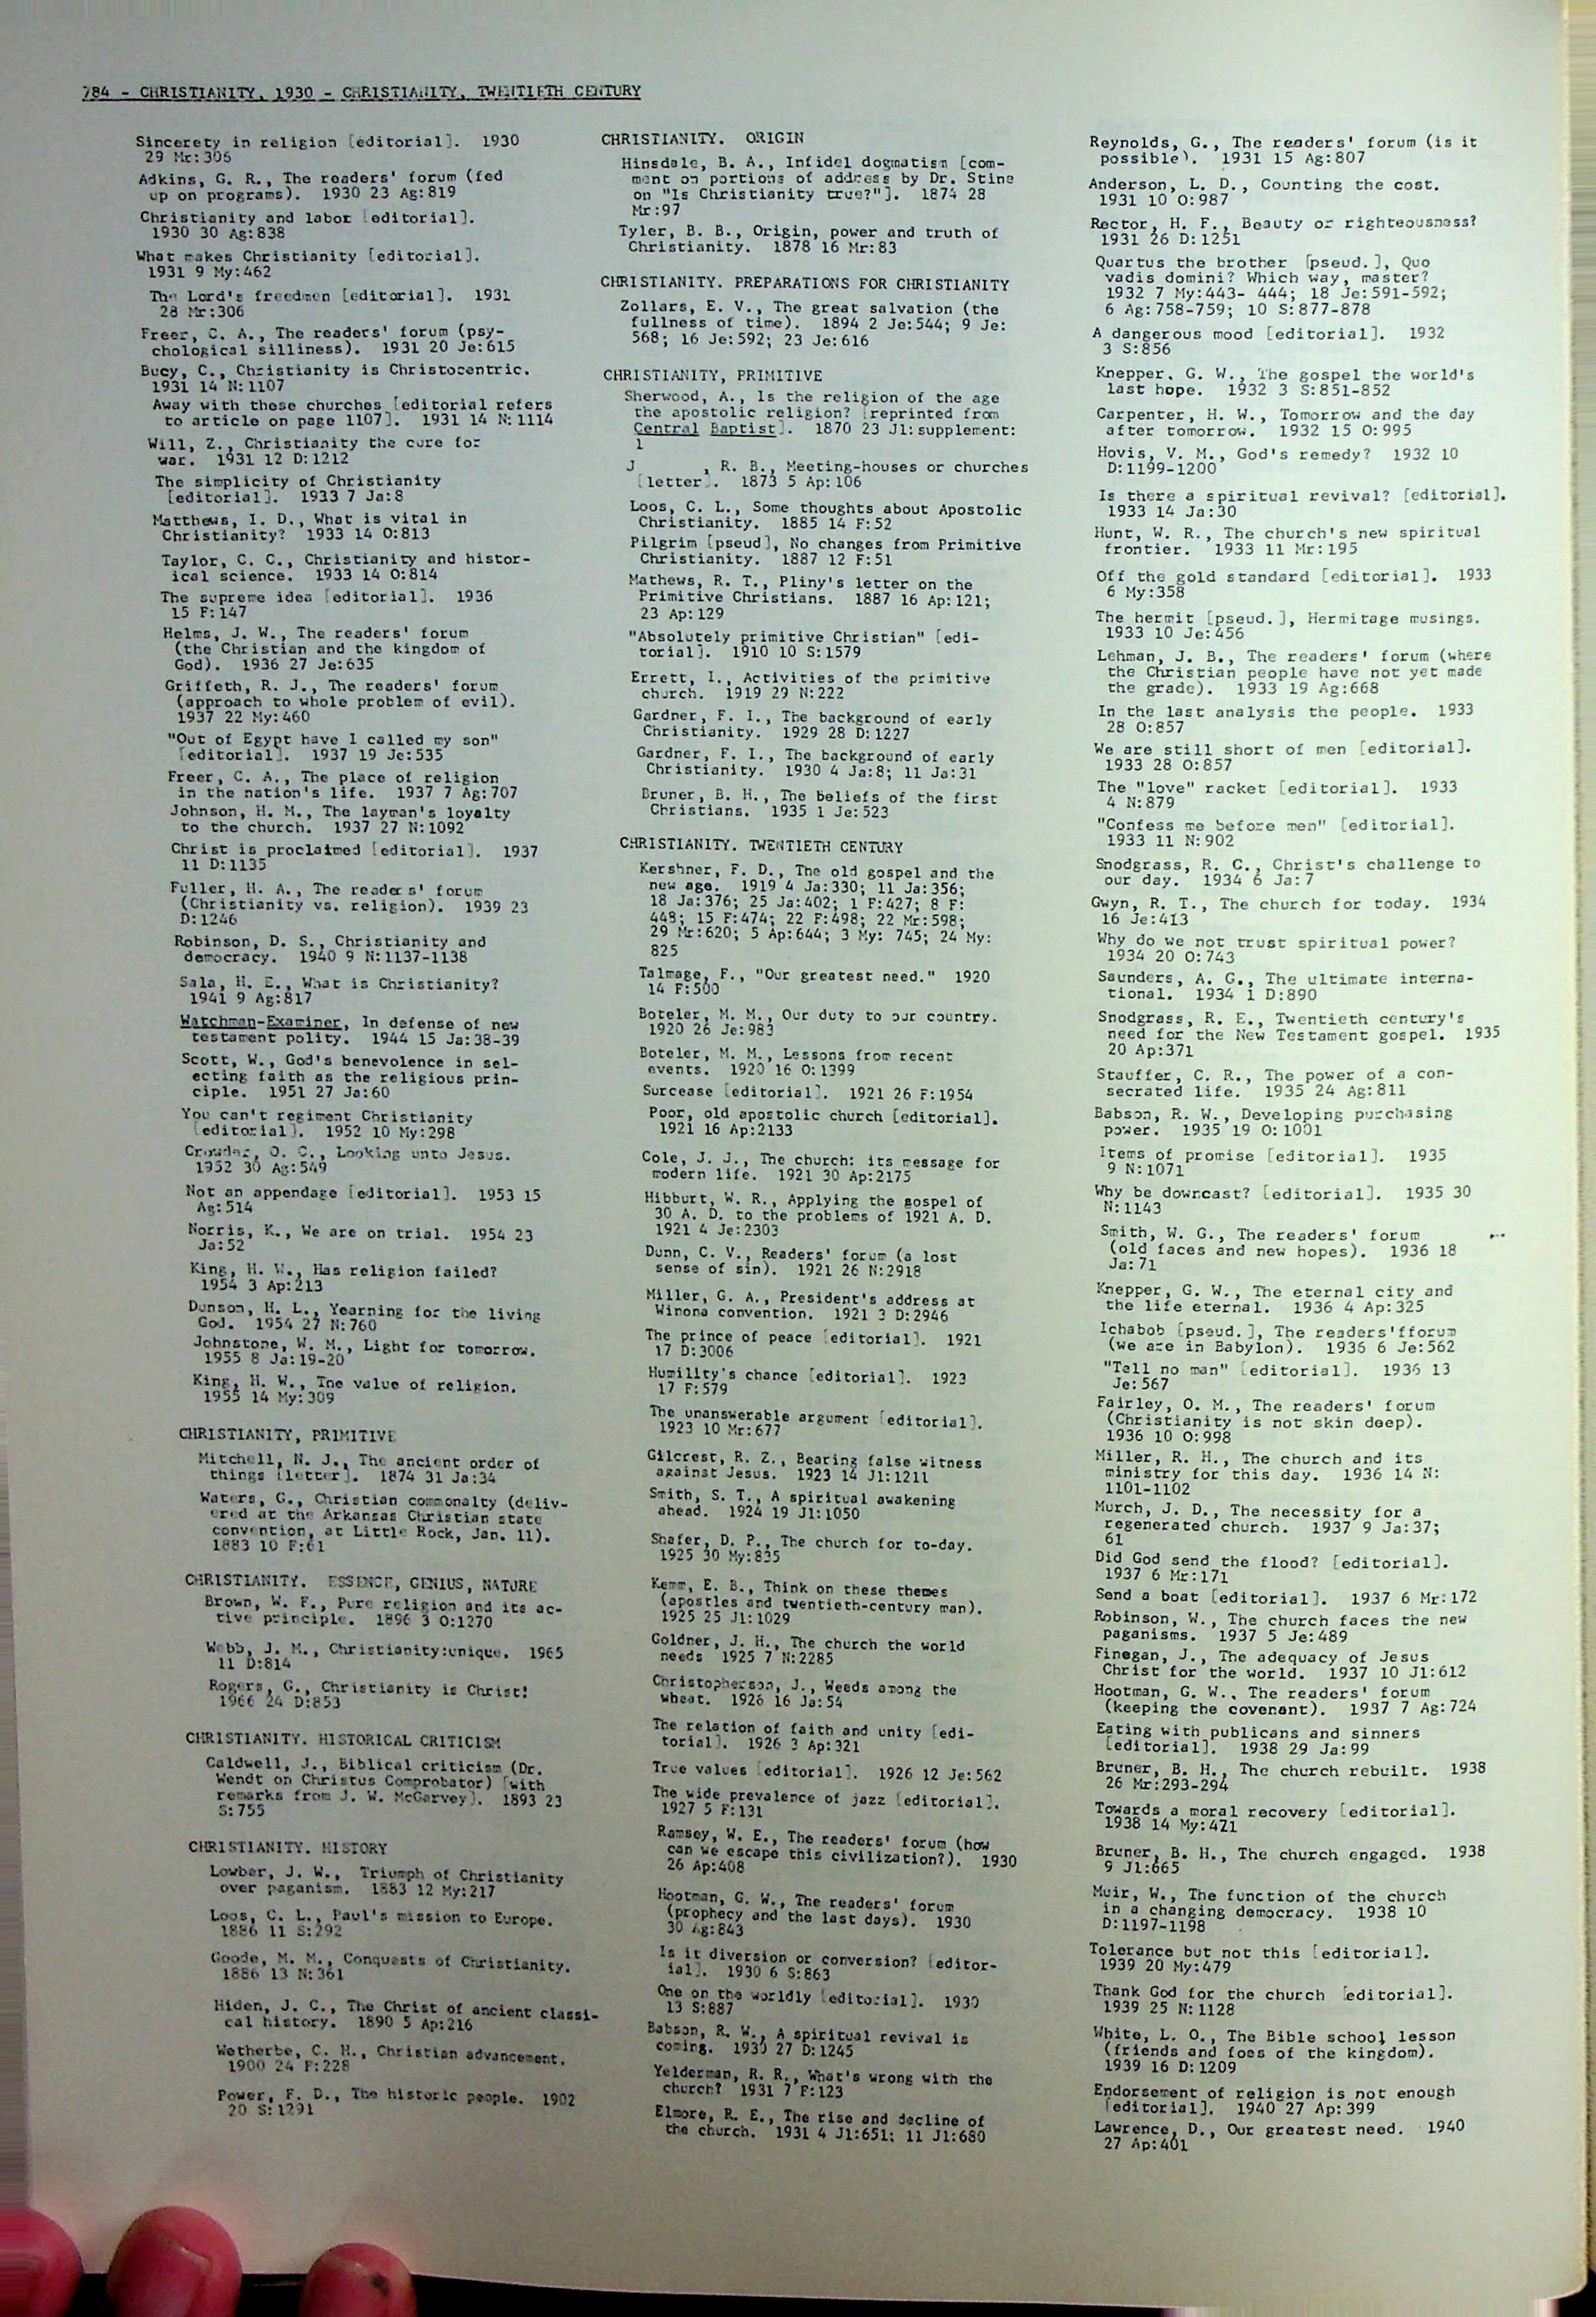 784 - CHRISTIANITY, 1930 - CHRISTIANITY, TWENTIETH CENTURY
Sincerety in religion [editorial]. 1930
29 Mr:306
Adkins, G. R., The readers' forum (fed
up on programs). 1930 23 Ag:819
Christianity and labor [editorial].
1930 30 Ag:838
What makes Christianity [editorial].
1931 9 My:462
The Lord's freedmen [editorial]. 1931
28 Mr:306
Freer, C. A., The readers' forum (psy-
chological silliness). 1931 20 Je:615
Bucy, C., Christianity is Christocentric.
1931 14 N:1107
Away with these churches [editorial refers
to article on page 1107]. 1931 14 N:1114
Will, Z., Christianity the cure for
war. 1931 12 D:1212
The simplicity of Christianity
[editorial]. 1933 7 Ja:8
Matthews, I. D., What is vital in
Christianity? 1933 14 O:813
Taylor, C. C., Christianity and histor-
ical science. 1933 14 O:814
The supreme idea [editorial]. 1936
15 F:147
Helms, J. W., The readers' forum
(the Christian and the kingdom of
God). 1936 27 Je:635
Griffeth, R. J., The readers' forum
(approach to whole problem of evil).
1937 22 My:460
"Out of Egypt have I called my son"
[editorial]. 1937 19 Je:535
Freer, C. A., The place of religion
in the nation's life. 1937 7 Ag:707
Johnson, H. M., The layman's loyalty
to the church. 1937 27 N:1092
Christ is proclaimed [editorial]. 1937
11 D:1135
Fuller, H. A., The readers' forum
(Christianity vs. religion). 1939 23
D:1246
Robinson, D. S., Christianity and
democracy. 1940 9 N:1137-1138
Sala, H. E., What is Christianity?
1941 9 Ag:817
Watchman-Examiner, In defense of new
testament polity. 1944 15 Ja:38-39
Scott, W., God's benevolence in sel-
ecting faith as the religious prin-
ciple. 1951 27 Ja:60
You can't regiment Christianity
[editorial]. 1952 10 My:298
Crowder, O. C., Looking unto Jesus.
1952 30 Ag:549
Not an appendage [editorial]. 1953 15
Ag:514
Norris, K., We are on trial. 1954 23
Ja:52
King, H. W., Has religion failed?
1954 3 Ap:213
Dunson, H. L., Yearning for the living
God. 1954 27 N:760
Johnstone, W. M., Light for tomorrow.
1955 8 Ja:19-20
King, H. W., The value of religion.
1955 14 My:309
CHRISTIANITY, PRIMITIVE
Mitchell, N. J., The ancient order of
things [letter]. 1874 31 Ja:34
Waters, G., Christian commonalty (deliv-
ered at the Arkansas Christian state
convention, at Little Rock, Jan. 11).
1883 10 F:61
CHRISTIANITY. ESSENCE, GENIUS, NATURE
Brown, W. F., Pure religion and its ac-
tive principle. 1896 3 O:1270
Webb, J. M., Christianity:unique. 1965
11 D:814
Rogers, G., Christianity is Christ!
1966 24 D:853
CHRISTIANITY. HISTORICAL CRITICISM
Caldwell, J., Biblical criticism (Dr.
Wendt on Christus Comprobator) [with
remarks from J. W. McGarvey]. 1893 23
S:755
CHRISTIANITY. HISTORY
Lowber, J. W., Triumph of Christianity
over paganism. 1883 12 My:217
Loos, C. L., Paul's mission to Europe.
1886 11 S:292
Goode, M. M., Conquests of Christianity.
1886 13 N:361
Hiden, J. C., The Christ of ancient classi-
cal history. 1890 5 Ap:216
Wetherbe, C. H., Christian advancement.
1900 24 F:228
Power, F. D., The historic people. 1902
20 S:1291
CHRISTIANITY. ORIGIN
Hinsdale, B. A., Infidel dogmatism [com-
ment on portions of address by Dr. Stine
on "Is Christianity true?"]. 1874 28
Mr:97
Tyler, B. B., Origin, power and truth of
Christianity. 1878 16 Mr:83
CHRISTIANITY. PREPARATIONS FOR CHRISTIANITY
Zollars, E. V., The great salvation (the
fullness of time). 1894 2 Je:544; 9 Je:
568; 16 Je:592; 23 Je:616
CHRISTIANITY, PRIMITIVE
Sherwood, A., Is the religion of the age
the apostolic religion? [reprinted from
Central Baptist]. 1870 23 Jl:supplement:
1
J , R. B., Meeting-houses or churches
[letter]. 1873 5 Ap:106
Loos, C. L., Some thoughts about Apostolic
Christianity. 1885 14 F:52
Pilgrim [pseud], No changes from Primitive
Christianity. 1887 12 F:51
Mathews, R. T., Pliny's letter on the
Primitive Christians. 1887 16 Ap:121;
23 Ap:129
"Absolutely primitive Christian" [edi-
torial]. 1910 10 S:1579
Errett, I., Activities of the primitive
church. 1919 29 N:222
Gardner, F. I., The background of early
Christianity. 1929 28 D:1227
Gardner, F. I., The background of early
Christianity. 1930 4 Ja:8; 11 Ja:31
Bruner, B. H., The beliefs of the first
Christians. 1935 1 Je:523
CHRISTIANITY. TWENTIETH CENTURY
Kershner, F. D., The old gospel and the
new age. 1919 4 Ja:330; 11 Ja:356;
18 Ja:376; 25 Ja:402; 1 F:427; 8 F:
448; 15 F:474; 22 F:498; 22 Mr:598;
29 Mr:620; 5 Ap:644; 3 My: 745; 24 My:
825
Talmage, F., "Our greatest need." 1920
14 F:500
Boteler, M. M., Our duty to our country.
1920 26 Je:983
Boteler, M. M., Lessons from recent
events. 1920 16 O:1399
Surcease [editorial]. 1921 26 F:1954
Poor, old apostolic church [editorial].
1921 16 Ap:2133
Cole, J. J., The church: its message for
modern life. 1921 30 Ap:2175
Hibburt, W. R., Applying the gospel of
30 A. D. to the problems of 1921 A. D.
1921 4 Je:2303
Dunn, C. V., Readers' forum (a lost
sense of sin). 1921 26 N:2918
Miller, G. A., President's address at
Winona convention. 1921 3 D:2946
The prince of peace [editorial]. 1921
17 D:3006
Humility's chance [editorial]. 1923
17 F:579
The unanswerable argument [editorial].
1923 10 Mr:677
Gilcrest, R. Z., Bearing false witness
against Jesus. 1923 14 Jl:1211
Smith, S. T., A spiritual awakening
ahead. 1924 19 Jl:1050
Shafer, D. P., The church for to-day.
1925 30 My:835
Kemm, E. B., Think on these themes
(apostles and twentieth-century man).
1925 25 Jl:1029
Goldner, J. H., The church the world
needs 1925 7 N:2285
Christopherson, J., Weeds among the
wheat. 1926 16 Ja:54
The relation of faith and unity [edi-
torial]. 1926 3 Ap:321
True values [editorial]. 1926 12 Je:562
The wide prevalence of jazz [editorial].
1927 5 F:131
Ramsey, W. E., The readers' forum (how
can we escape this civilization?). 1930
26 Ap:408
Hootman, G. W., The readers' forum
(prophecy and the last days). 1930
30 Ag:843
Is it diversion or conversion? [editor-
ial]. 1930 6 S:863
One on the worldly [editorial]. 1930
13 S:887
Babson, R. W., A spiritual revival is
coming. 1930 27 D:1245
Yelderman, R. R., What's wrong with the
church? 1931 7 F:123
Elmore, R. E., The rise and decline of
the church. 1931 4 Jl:651; 11 Jl:680
Reynolds, G., The readers' forum (is it
possible). 1931 15 Ag:807
Anderson, L. D., Counting the cost.
1931 10 O:987
Rector, H. F., Beauty or righteousness?
1931 26 D:1251
Quartus the brother [pseud.], Quo
vadis domini? Which way, master?
1932 7 My:443- 444; 18 Je:591-592;
6 Ag:758-759; 10 S:877-878
A dangerous mood [editorial]. 1932
3 S:856
Knepper, G. W., The gospel the world's
last hope. 1932 3 S:851-852
Carpenter, H. W., Tomorrow and the day
after tomorrow. 1932 15 O:995
Hovis, V. M., God's remedy? 1932 10
D:1199-1200
Is there a spiritual revival? [editorial].
1933 14 Ja:30
Hunt, W. R., The church's new spiritual
frontier. 1933 11 Mr:195
Off the gold standard [editorial]. 1933
6 My:358
The hermit [pseud.], Hermitage musings.
1933 10 Je:456
Lehman, J. B., The readers' forum (where
the Christian people have not yet made
the grade). 1933 19 Ag:668
In the last analysis the people. 1933
28 O:857
We are still short of men [editorial].
1933 28 O:857
The "love" racket [editorial]. 1933
4 N:879
"Confess me before men" [editorial].
1933 11 N:902
Snodgrass, R. C., Christ's challenge to
our day. 1934 6 Ja:7
Gwyn, R. T., The church for today. 1934
16 Je:413
Why do we not trust spiritual power?
1934 20 O:743
Saunders, A. G., The ultimate interna-
tional. 1934 1 D:890
Snodgrass, R. E., Twentieth century's
need for the New Testament gospel. 1935
20 Ap:371
Stauffer, C. R., The power of a con-
secrated life. 1935 24 Ag:811
Babson, R. W., Developing purchasing
power. 1935 19 O:1001
Items of promise [editorial]. 1935
9 N:1071
Why be downcast? [editorial]. 1935 30
N:1143
Smith, W. G., The readers' forum
(old faces and new hopes). 1936 18
Ja:71
Knepper, G. W., The eternal city and
the life eternal. 1936 4 Ap:325
Ichabob [pseud.], The readers'fforum
(we are in Babylon). 1936 6 Je:562
"Tell no man" [editorial]. 1936 13
Je:567
Fairley, O. M., The readers' forum
(Christianity is not skin deep).
1936 10 O:998
Miller, R. H., The church and its
ministry for this day. 1936 14 N:
1101-1102
Murch, J. D., The necessity for a
regenerated church. 1937 9 Ja:37;
61
Did God send the flood? [editorial].
1937 6 Mr:171
Send a boat [editorial]. 1937 6 Mr:172
Robinson, W., The church faces the new
paganisms. 1937 5 Je:489
Finegan, J., The adequacy of Jesus
Christ for the world. 1937 10 Jl:612
Hootman, G. W., The readers' forum
(keeping the covenant). 1937 7 Ag:724
Eating with publicans and sinners
[editorial]. 1938 29 Ja:99
Bruner, B. H., The church rebuilt. 1938
26 Mr:293-294
Towards a moral recovery [editorial].
1938 14 My:471
Bruner, B. H., The church engaged. 1938
9 Jl:665
Muir, W., The function of the church
in a changing democracy. 1938 10
D:1197-1198
Tolerance but not this [editorial].
1939 20 My:479
Thank God for the church [editorial].
1939 25 N:1128
White, L. O., The Bible school lesson
(friends and foes of the kingdom).
1939 16 D:1209
Endorsement of religion is not enough
[editorial]. 1940 27 Ap:399
Lawrence, D., Our greatest need. 1940
27 Ap:401